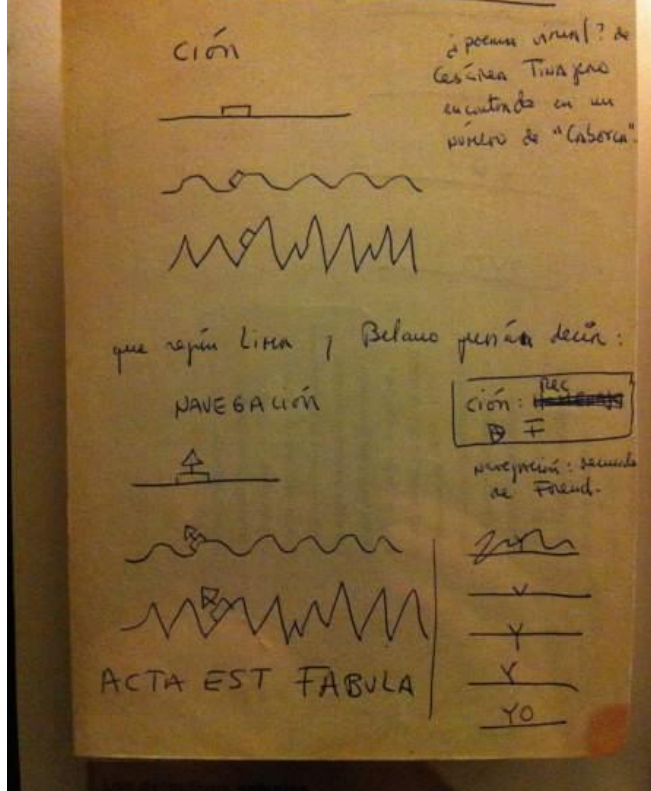 CIÓN
¿poema visual? de
Cesárea Tinajero
encontrado en un
número de "Caborca".
que según Lima y Belano querría decir:
NAVEGACIÓN
ción: Rec
navegación: recuerdo
de Freud.
Y
Y
YO
ACTA EST FABULA